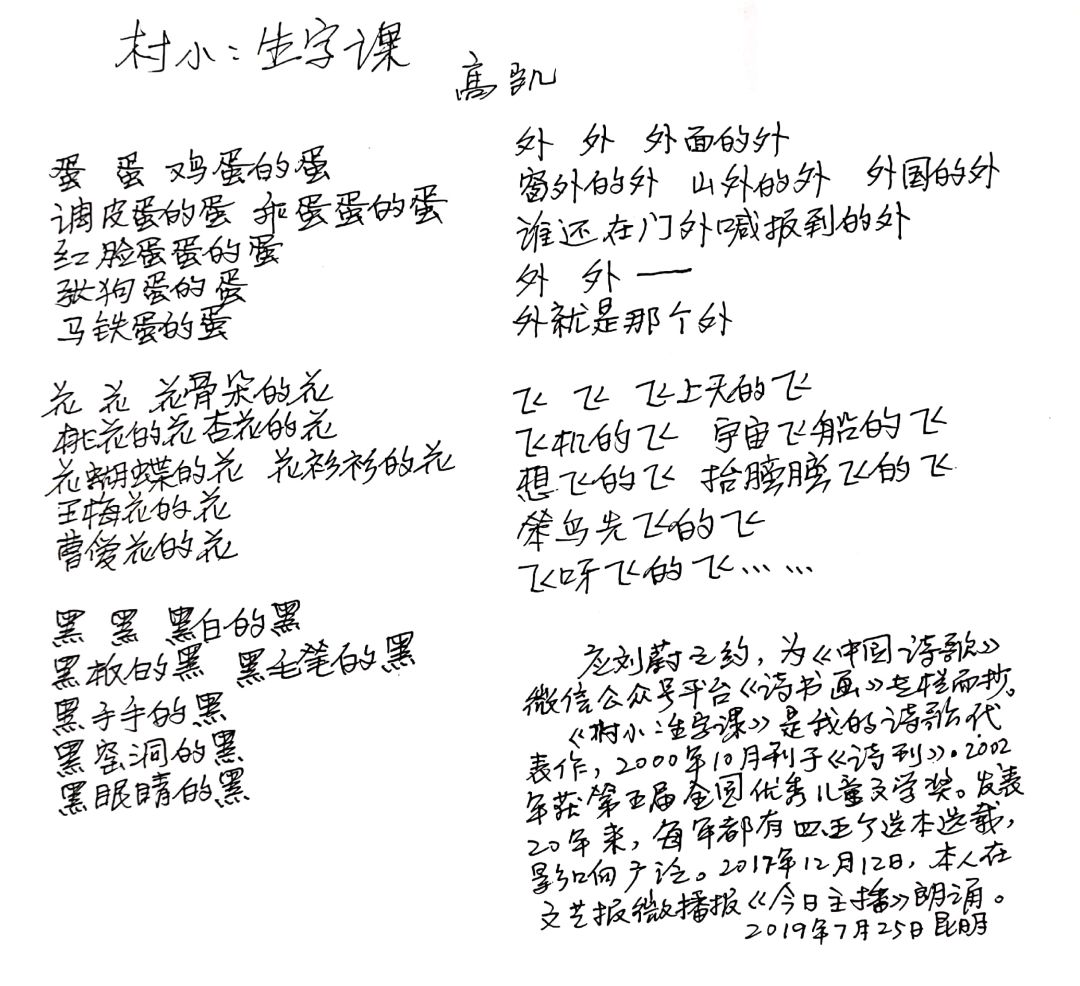 村小：生字课
高凯
蛋 蛋 鸡蛋的蛋
调皮蛋的蛋 乖蛋蛋的蛋
红脸蛋蛋的蛋
张狗蛋的蛋
马铁蛋的蛋
花 花 花骨朵的花
桃花的花 杏花的花
花蝴蝶的花 花衫衫的花
王梅花的花
曹爱花的花
黑 黑 黑白的黑
黑板的黑 黑毛笔的黑
黑手手的黑
黑窑洞的黑
黑眼睛的黑
外 外 外面的外
窗外的外 山外的外 外国的外
谁还在门外喊报到的外
外 外——
外就是那个外
飞 飞 飞上天的飞
飞机的飞 宇宙飞船的飞
想飞的飞 抬膀膀飞的飞
笨鸟先飞的飞
飞呀飞的飞……
应刘蔚之约，为《中国诗歌》
微信公众号平台《诗书画》专栏而抄。
《村小：生字课》是我的诗歌代
表作，2000年10月刊于《诗刊》。2002
年获第五届全国优秀儿童文学奖。发表
20年来，每年都有四五个选本选载，
影响广泛。2017年12月12日，本人在
文艺报微播报《今日主播》朗诵。
2019年7月25日昆明